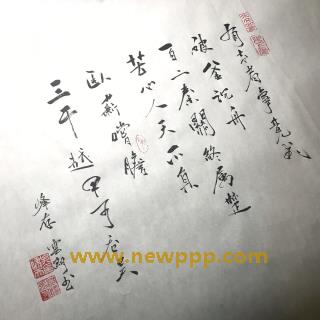 有志者事竟成
破釜沉舟
百二秦關終屬楚
苦心人天不負
臥薪嚐膽
三千越甲可吞吳
www.newppp.com